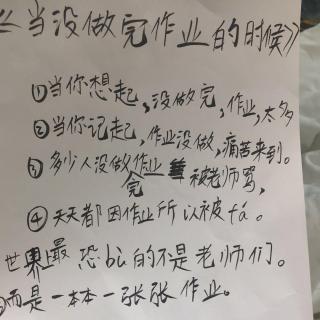 《当没做完作业的时候》
①当你想起,没做完,作业,太多
②当你记起,作业没做,痛苦来到。
③多少人没做完作业 被老师骂,
④天天都因作业所以被fá。
世界上最恐bù的不是老师们。
而是一本本一张张作业。